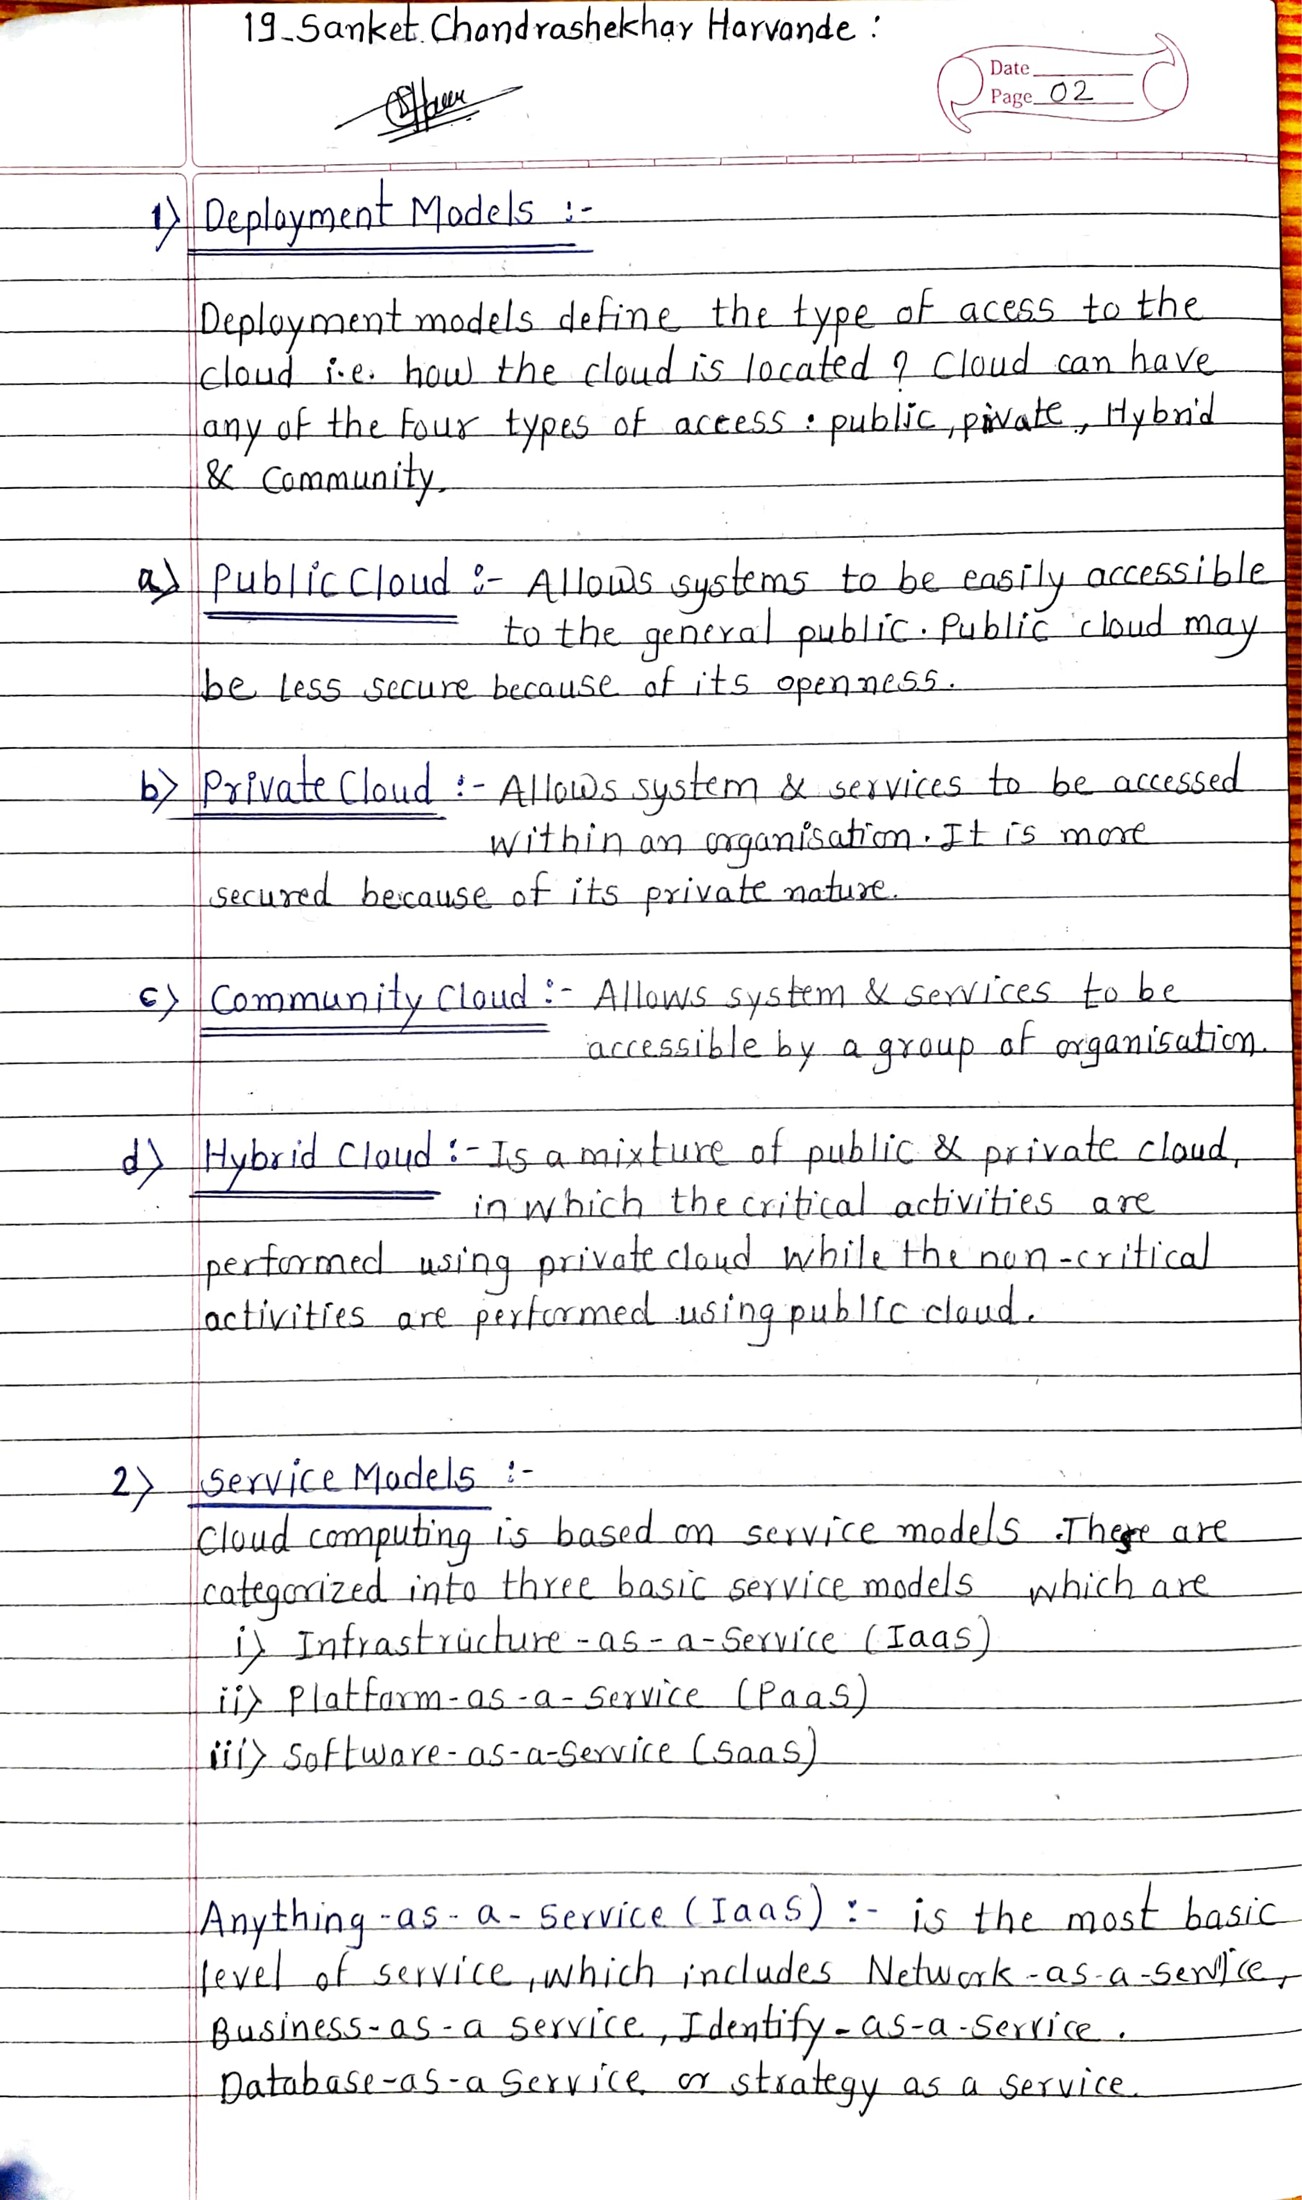 19_Sanket Chandrashekhar Harvande :
Date
Page 02
1) Deployment Models :-
Deployment models define the type of acess to the
cloud i.e. how the cloud is located ? Cloud can have
any of the four types of access : public, private, Hybrid
& Community.
a) Public Cloud :- Allows systems to be easily accessible
to the general public. Public cloud may
be less secure because of its openness.
b) Private Cloud :- Allows system & services to be accessed
within an organisation. It is more
secured because of its private nature.
c) Community Cloud :- Allows system & services to be
accessible by a group of organisation.
d) Hybrid Cloud :- Is a mixture of public & private cloud,
in which the critical activities are
performed using private cloud while the non-critical
activities are performed using public cloud.
2) Service Models :-
Cloud computing is based on service models. These are
categorized into three basic service models which are
i) Infrastructure-as-a-Service (Iaas)
ii) Platform-as-a-Service (PaaS)
iii) Software-as-a-Service (Saas)
Anything-as-a-Service (IaaS) :- is the most basic
level of service, which includes Network-as-a-Service,
Business-as-a service, Identify-as-a-Service.
Database-as-a Service or strategy as a service.